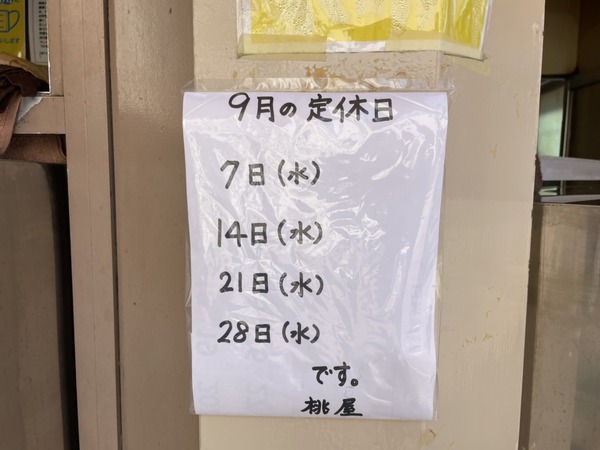 9月の定休日
7日(水)
14日(水)
21日(水)
28日(水)
です。
桃屋